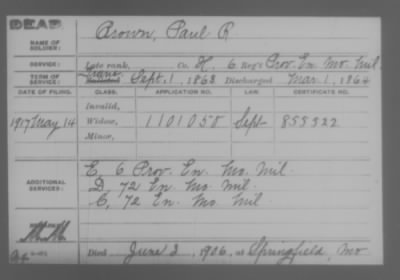 DEAD
NAME OF SOLDIER: Brown, Paul R
SERVICE: Late rank, Co. H, 6 Reg't Prov. En. Mo. Mil
TERM OF SERVICE: Trans. Enlisted Sept. 1, 1863 Discharged Mar. 1, 1864
DATE OF FILING. CLASS. APPLICATION NO. LAW. CERTIFICATE NO.
Invalid,
1917 May 14 Widow, 1101050 Sept 855322
Minor,
ADDITIONAL SERVICES:
E, 6 Prov. En. Mo. Mil.
D, 72 En. Mo. Mil.
C, 72 En. Mo. Mil
Died June 2, 1906, at Springfield, Mo